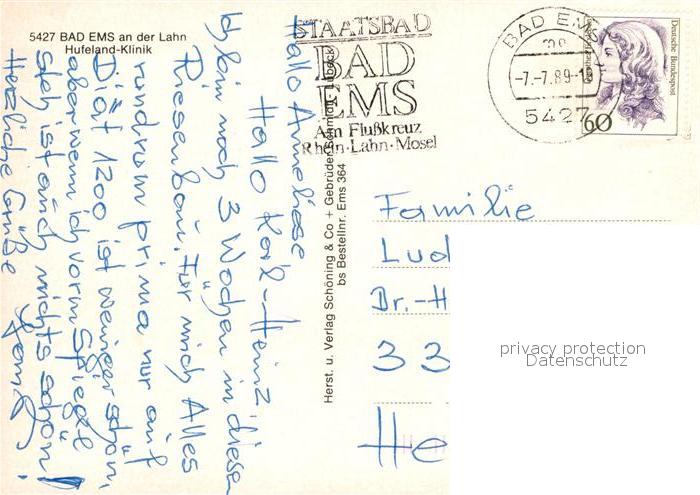 5427 BAD EMS an der Lahn
Hufeland-Klinik
Hallo Anneliese
Hallo Karl-Heinz,
Ich bin noch 3 Wochen in diesem
Riesenbau. Für mich Alles
rundrum prima nur auf
Diät 1200 ist weniger schön,
aber wenn ich vorm Spiegel
steh ist auch nichts schön!
Herzliche Grüße
Herst. u. Verlag Schöning & Co + Gebrüder Schmidt, Lübeck
bs Bestellnr. Ems 364
STAATSBAD
BAD
EMS
Am Flußkreuz
Rhein-Lahn-Mosel
BAD EMS
mo
-7.-7.89-1
5427
Deutsche Bundespost
60
Familie
Lud
Dr.-H
33
He
privacy protection
Datenschutz